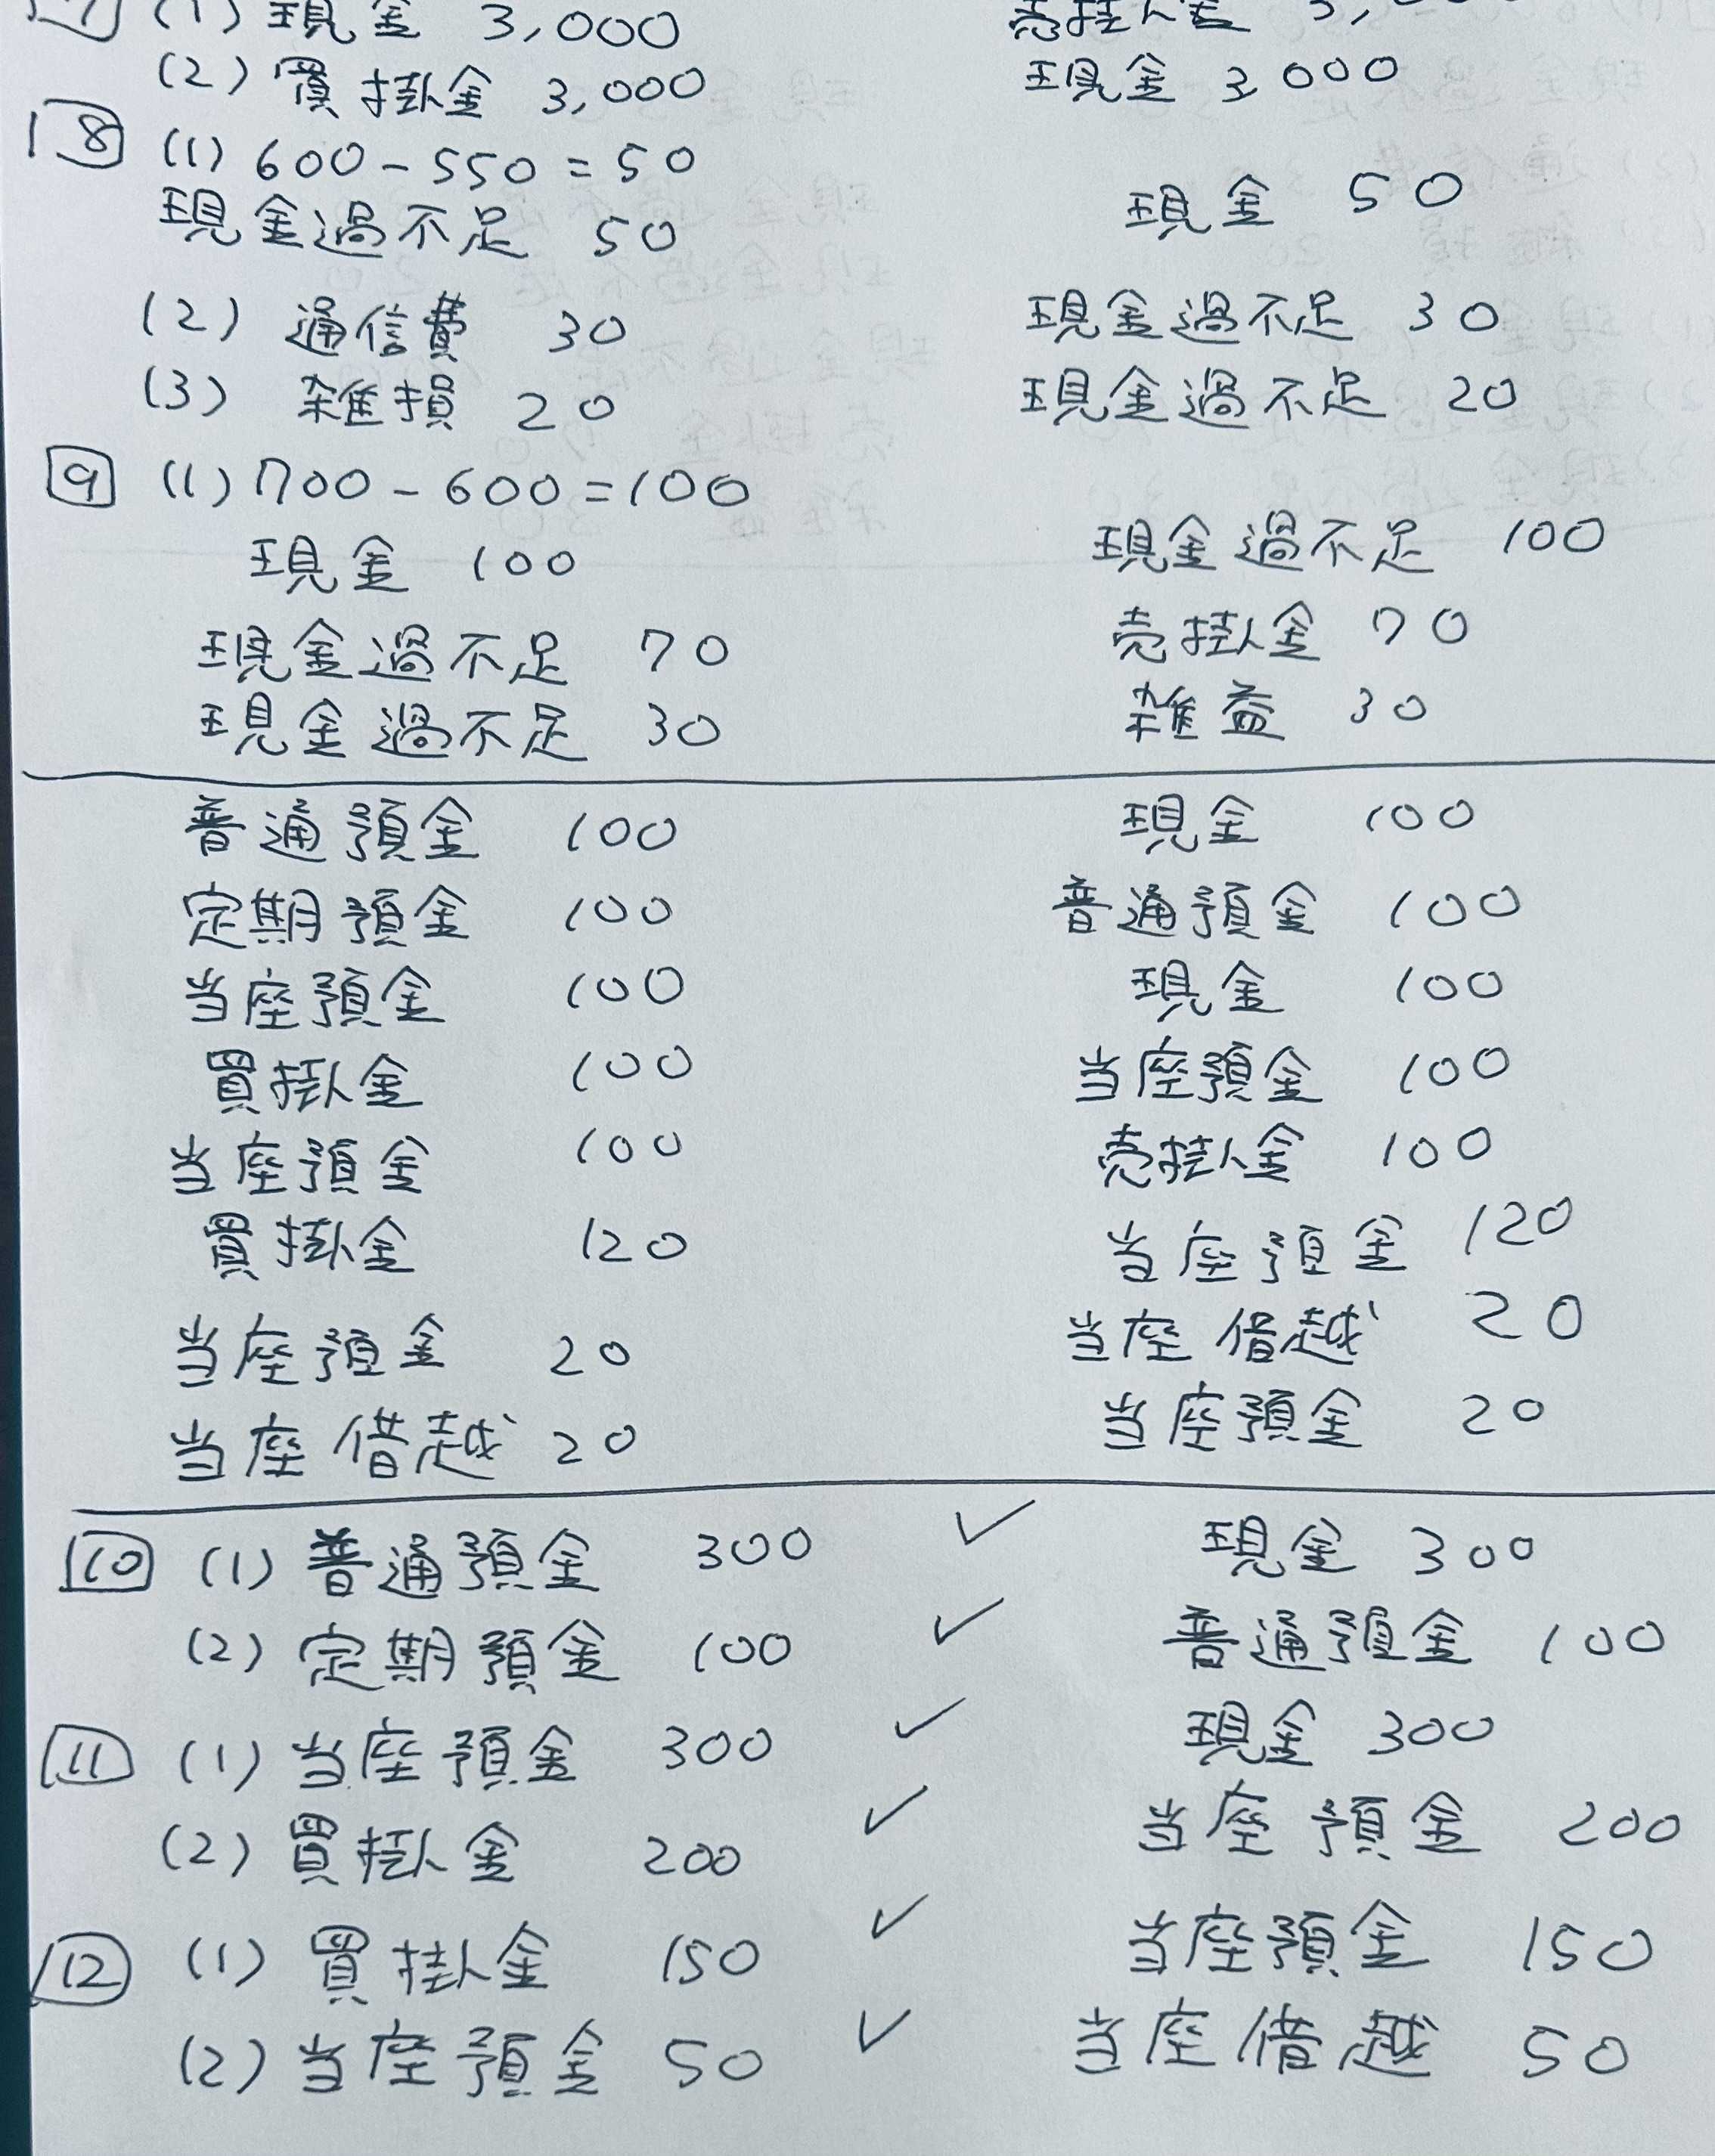 (1) 現金 3,000 売掛金
(2) 買掛金 3,000 現金 3,000
8 (1) 600-550=50
現金過不足 50 現金 50
(2) 通信費 30 現金過不足 30
(3) 雑損 20 現金過不足 20
9 (1) 700-600=100
現金 100 現金過不足 100
現金過不足 70 売掛金 70
現金過不足 30 雑益 30
普通預金 100 現金 100
定期預金 100 普通預金 100
当座預金 100 現金 100
買掛金 100 当座預金 100
当座預金 100 売掛金 100
買掛金 120 当座預金 120
当座預金 20 当座借越 20
当座借越 20 当座預金 20
10 (1) 普通預金 300 ✓ 現金 300
(2) 定期預金 100 ✓ 普通預金 100
11 (1) 当座預金 300 ✓ 現金 300
(2) 買掛金 200 ✓ 当座預金 200
12 (1) 買掛金 150 ✓ 当座預金 150
(2) 当座預金 50 ✓ 当座借越 50